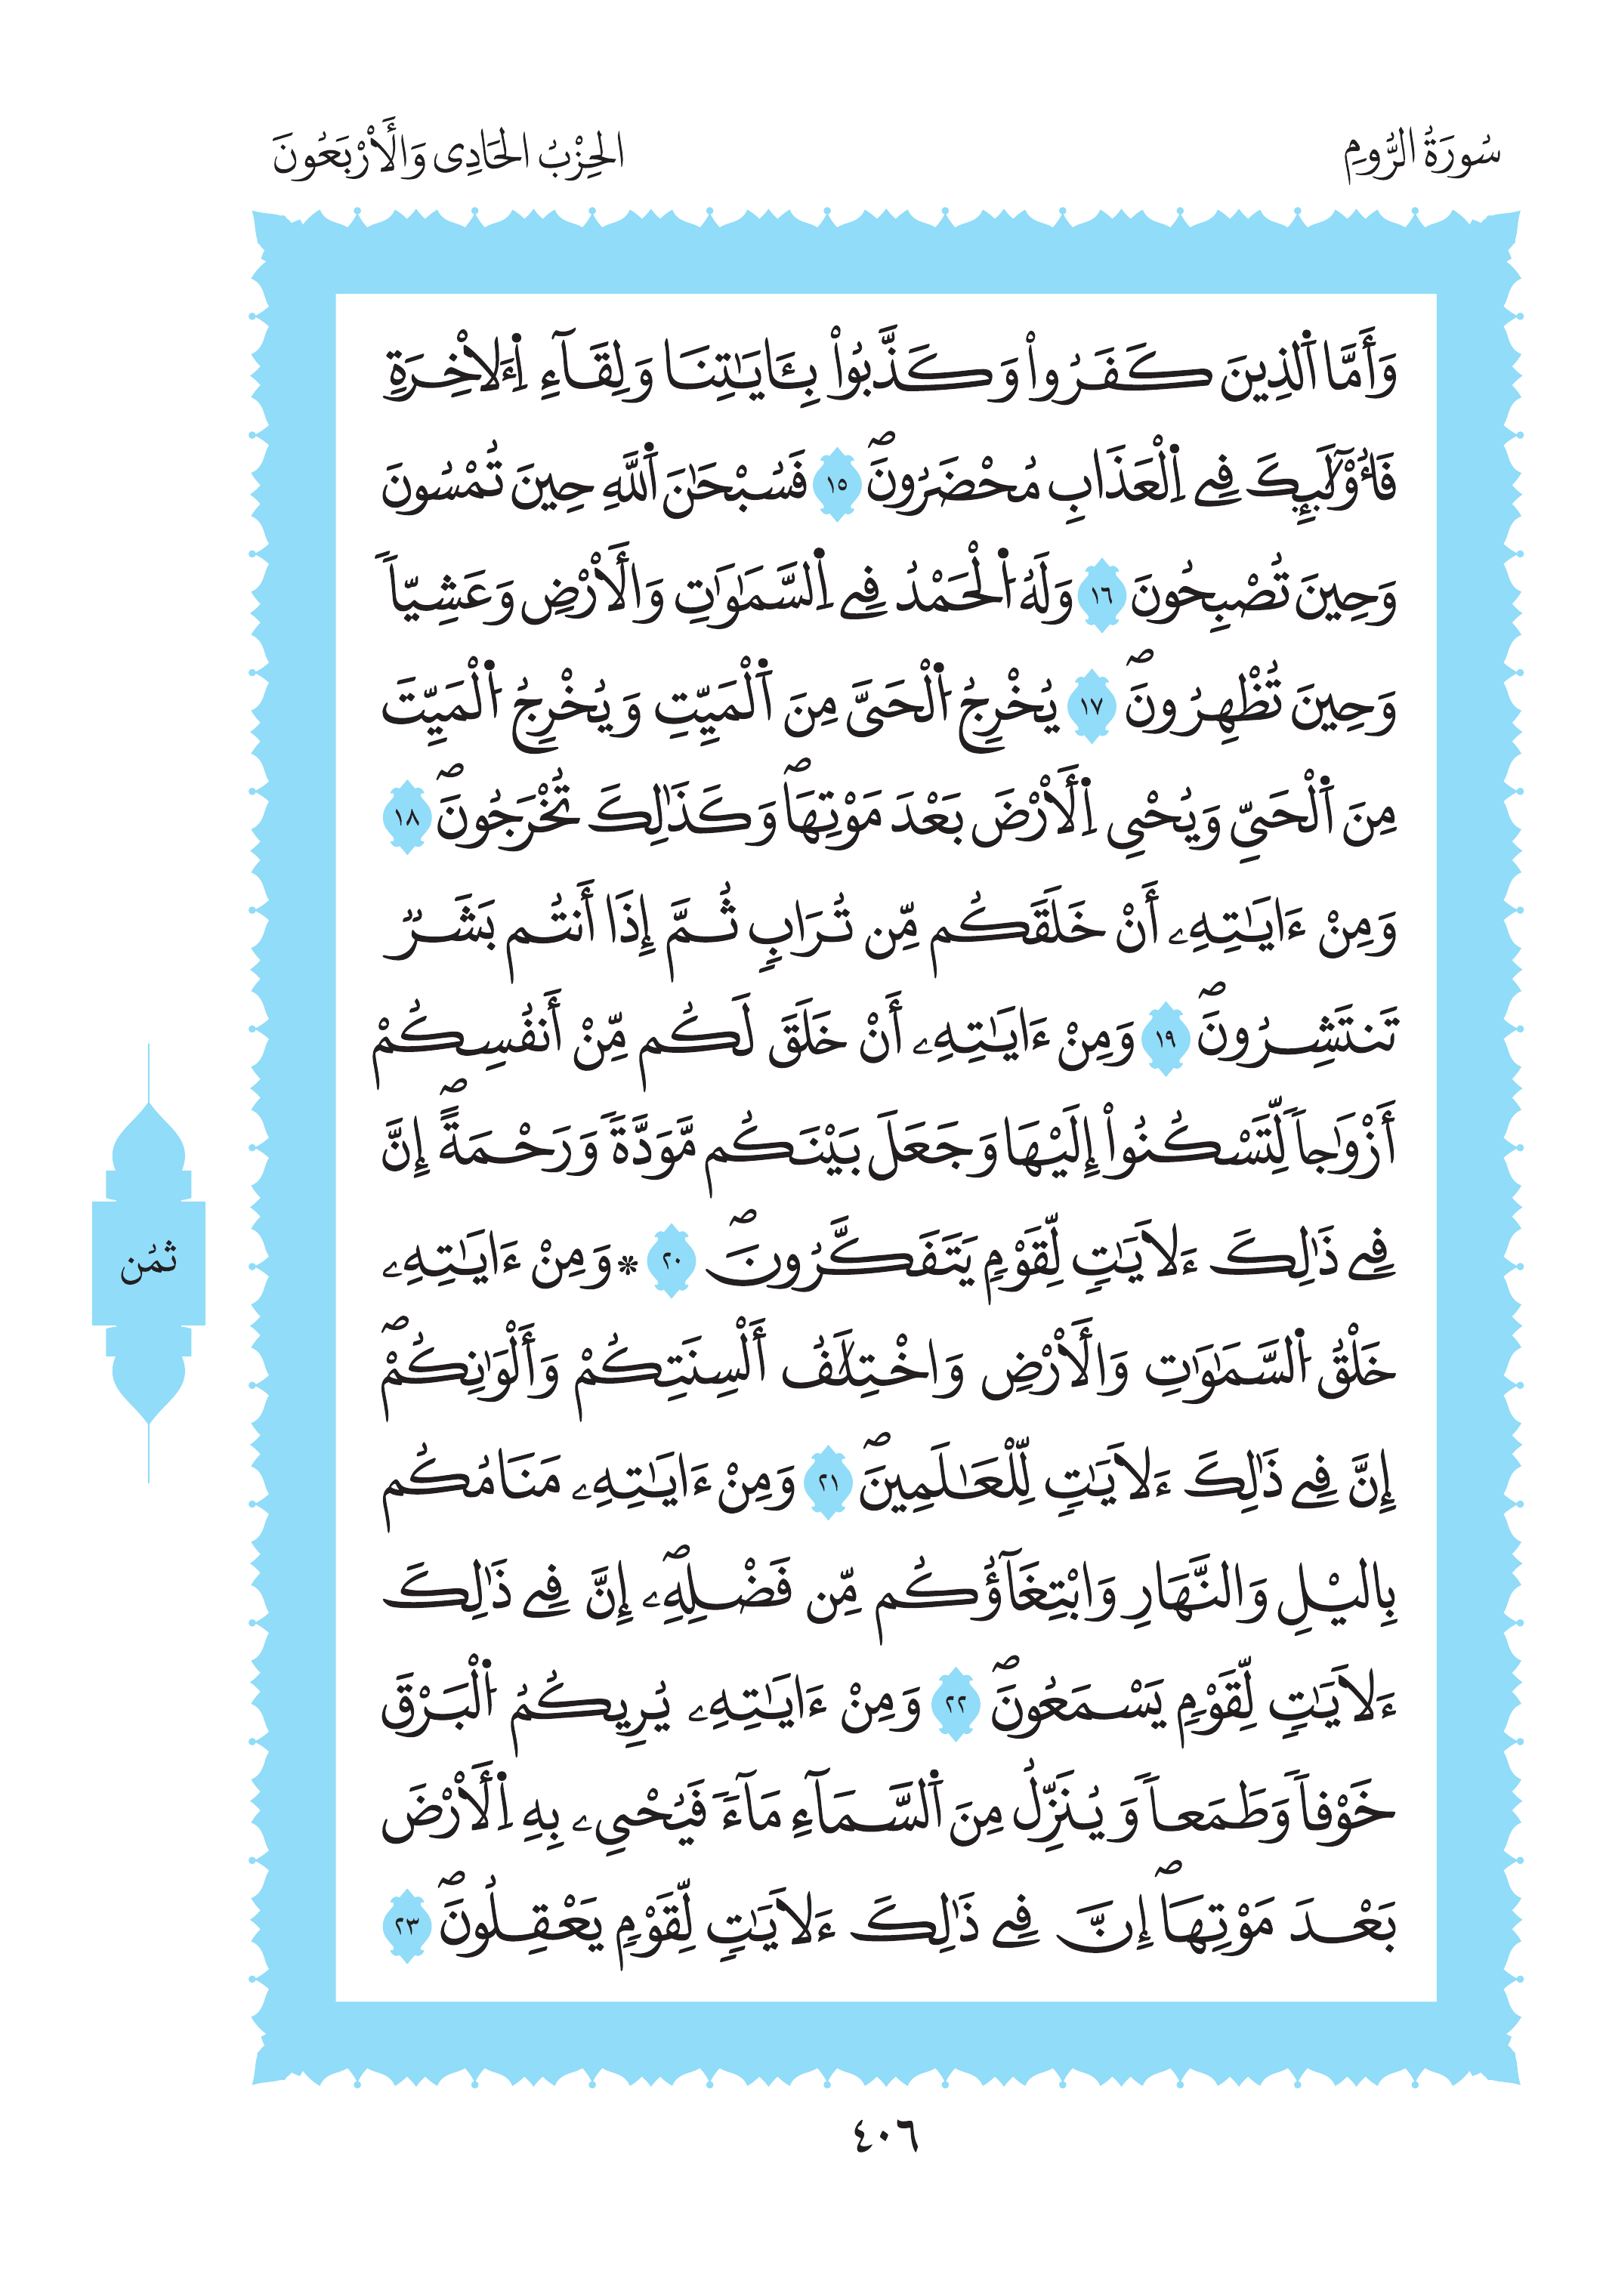 سُورَةُ الرُّومِ
الحِزْبُ الحَادِى وَالأَرْبَعُونَ
وَأَمَّا اَ۬لذِينَ كَفَرُواْ وَكَذَّبُواْ بِـَٔايَٰتِنَا وَلِقَآءِ اِ۬ءَلَاخِرَةِ
فَأُوْلَٰٓئِكَ فِے اِ۬لْعَذَابِ مُحْضَرُونَۖ ١٥ فَسُبْحَٰنَ اَ۬للَّهِ حِينَ تُمْسُونَ
وَحِينَ تُصْبِحُونَ ١٦ وَلَهُ اُ۬لْحَمْدُ فِے اِ۬لسَّمَٰوَٰتِ وَالَارْضِ وَعَشِيّاٗ
وَحِينَ تُظْهِرُونَۖ ١٧ يُخْرِجُ اُ۬لْحَيَّ مِنَ اَ۬لْمَيِّتِ وَيُخْرِجُ اُ۬لْمَيِّتَ
مِنَ اَ۬لْحَيِّ وَيُحْيِ اِ۬لَارْضَ بَعْدَ مَوْتِهَاۖ وَكَذَٰلِكَ تُخْرَجُونَۖ ١٨
وَمِنْ ءَايَٰتِهِۦ أَنْ خَلَقَكُم مِّن تُرَابٖ ثُمَّ إِذَا أَنتُم بَشَرٞ
تَنتَشِرُونَۖ ١٩ وَمِنْ ءَايَٰتِهِۦ أَنْ خَلَقَ لَكُم مِّنْ أَنفُسِكُمْ
أَزْوَٰجاٗ لِّتَسْكُنُواْ إِلَيْهَا وَجَعَلَ بَيْنَكُم مَّوَدَّةٗ وَرَحْمَةًۖ إِنَّ
فِے ذَٰلِكَ ءَلَايَٰتٖ لِّقَوْمٖ يَتَفَكَّرُونَۖ ٢٠ * وَمِنْ ءَايَٰتِهِۦ
خَلْقُ اُ۬لسَّمَٰوَٰتِ وَالَارْضِ وَاخْتِلَٰفُ أَلْسِنَتِكُمْ وَأَلْوَٰنِكُمْۖ
إِنَّ فِے ذَٰلِكَ ءَلَايَٰتٖ لِّلْعَٰلَمِينَۖ ٢١ وَمِنْ ءَايَٰتِهِۦ مَنَامُكُم
بِاليْلِ وَالنَّهَارِ وَابْتِغَآؤُكُم مِّن فَضْلِهِۦۖ إِنَّ فِے ذَٰلِكَ
ءَلَايَٰتٖ لِّقَوْمٖ يَسْمَعُونَۖ ٢٢ وَمِنْ ءَايَٰتِهِۦ يُرِيكُمُ اُ۬لْبَرْقَ
خَوْفاٗ وَطَمَعاٗ وَيُنَزِّلُ مِنَ اَ۬لسَّمَآءِ مَآءٗ فَيُحْيِۦ بِهِ اِ۬لَارْضَ
بَعْدَ مَوْتِهَاۖ إِنَّ فِے ذَٰلِكَ ءَلَايَٰتٖ لِّقَوْمٖ يَعْقِلُونَۖ ٢٣
ثمُن
٤٠٦